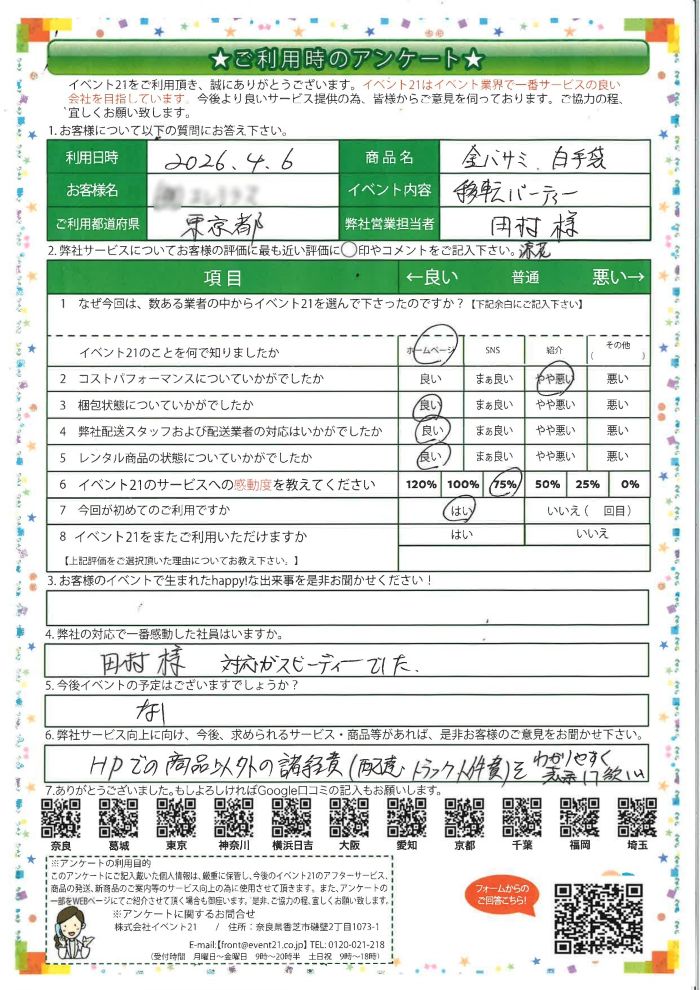 ★ご利用時のアンケート★
イベント21をご利用頂き、誠にありがとうございます。イベント21はイベント業界で一番サービスの良い
会社を目指しています。今後より良いサービス提供の為、皆様からご意見を伺っております。ご協力の程、
宜しくお願い致します。
1.お客様について以下の質問にお答え下さい。
利用日時 2026.4.6 商品名 金バサミ、白手袋
お客様名 イベント内容 移転パーティー
ご利用都道府県 東京都 弊社営業担当者 田村様
2.弊社サービスについてお客様の評価に最も近い評価に○印やコメントをご記入下さい。
項目 ←良い 普通 悪い→
1 なぜ今回は、数ある業者の中からイベント21を選んで下さったのですか？【下記余白にご記入下さい】
イベント21のことを何で知りましたか ホームページ SNS 紹介 その他( )
2 コストパフォーマンスについていかがでしたか 良い まぁ良い やや悪い 悪い
3 梱包状態についていかがでしたか 良い まぁ良い やや悪い 悪い
4 弊社配送スタッフおよび配送業者の対応はいかがでしたか 良い まぁ良い やや悪い 悪い
5 レンタル商品の状態についていかがでしたか 良い まぁ良い やや悪い 悪い
6 イベント21のサービスへの感動度を教えてください 120% 100% 75% 50% 25% 0%
7 今回が初めてのご利用ですか はい いいえ( 回目)
8 イベント21をまたご利用いただけますか はい いいえ
【上記評価をご選択頂いた理由についてお教え下さい。】
3.お客様のイベントで生まれたhappy!な出来事を是非お聞かせください！
4.弊社の対応で一番感動した社員はいますか。
田村様 対応がスピーディーでした.
5.今後イベントの予定はございますでしょうか？
なし
6.弊社サービス向上に向け、今後、求められるサービス・商品等があれば、是非お客様のご意見をお聞かせ下さい。
HPでの商品以外の諸経費(配達・トラック人件費)をわかりやすく
表示して欲しい
7.ありがとうございました。もしよろしければGoogle口コミの記入もお願いします。
奈良 葛城 東京 神奈川 横浜日吉 大阪 愛知 京都 千葉 福岡 埼玉
※アンケートの利用目的
このアンケートにご記入戴いた個人情報は、厳重に保管し、今後のイベント21のアフターサービス、
商品の発送、新商品のご案内等のサービス向上の為に使用させて頂きます。また、アンケートの
一部をWEBページにてご紹介させて頂く場合も御座います。是非、ご協力の程、宜しくお願い致します。
※アンケートに関するお問合せ
株式会社イベント21 / 住所：奈良県香芝市磯壁2丁目1073-1
E-mail:【front@event21.co.jp】 TEL: 0120-021-218
(受付時間 月曜日〜金曜日 9時〜20時半 土日祝 9時〜18時)
フォームからの
ご回答こちら!